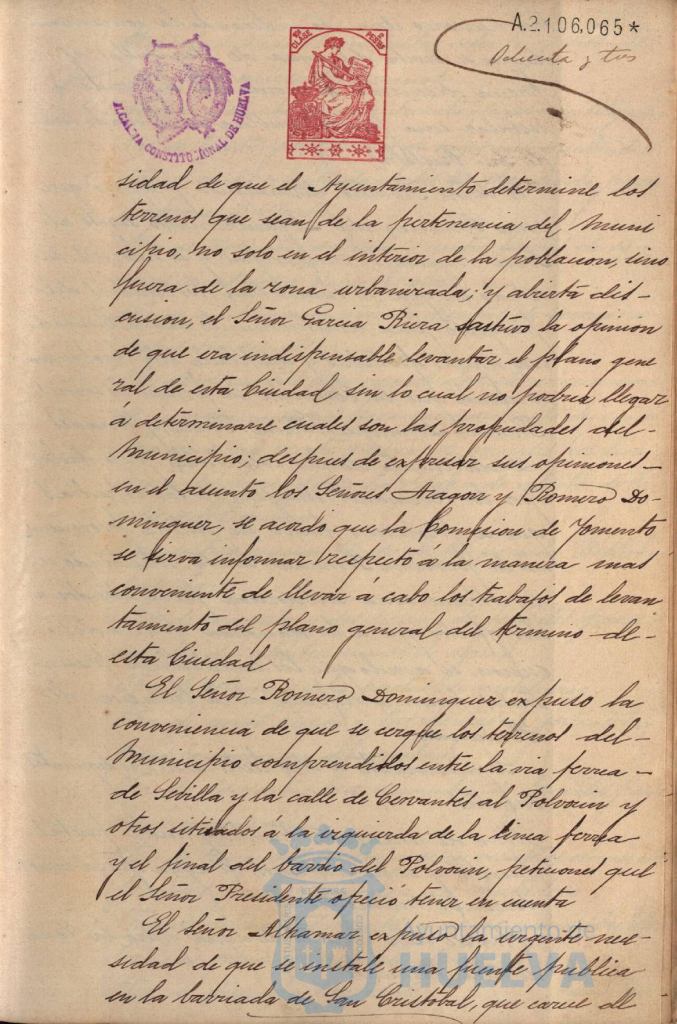 A.2.106,065*
Ochenta y tres
10ª CLASE
ALCALDÍA CONSTITUCIONAL DE HUELVA
sidad de que el Ayuntamiento determine los
terrenos que sean de la pertenencia del Muni
cipio, no solo en el interior de la poblacion, sino
fuera de la zona urbanizada; y abierta dis-
cusion, el Señor Garcia Riera sostuvo la opinion
de que era indispensable levantar el plano gene
ral de esta Ciudad sin lo cual no podria llegar
á determinarse cuales son las propiedades del-
Municipio; despues de expresar sus opiniones-
en el asunto los Señores Aragon y Romero Do-
minguez, se acordó que la Comision de Fomento
se sirva informar respecto á la manera mas
conveniente de llevar á cabo los trabajos de levan
tamiento del plano general del termino de-
esta Ciudad
El Señor Romero Dominguez expuso la
conveniencia de que se cerque los terrenos del-
Municipio comprendidos entre la via ferrea-
de Sevilla y la calle de Cervantes al Polvorin y
otros situados á la izquierda de la linea ferrea
y el final del barrio del Polvorin, peticiones que
el Señor Presidente ofreció tener en cuenta
El Señor Alhamar expuso la urgente nece-
sidad de que se instale una fuente publica
en la barriada de San Cristobal, que carece de
Ayuntamiento de
HUELVA